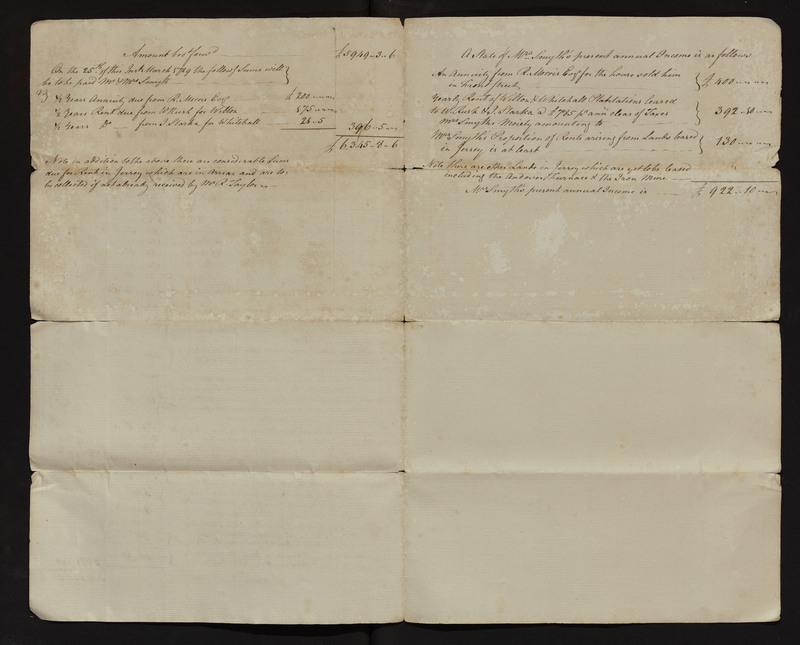 Amount bro.t forw.d £5949-3-6
On the 25.th of this Ins.t March the follow.g Sums will
be to be paid M.r & M.rs Smyth
½ Years Annuity due from R. Morris Esq.r £ 200
½ Years Rent due from W. Rush for Wilton
½ Years D.o from J. Starke for Whitehall 396-5
£ 6,345-8-6
Note in addition to the above there are considerable Sums
due for Rent in Jersey which are in Arrear and are to
be collected if not already received by M.r R. Taylor
A State of M.rs Smyth's present annual Income is as follows
An Annuity from R. Morris Esq.r for the house sold him
in Street £ 400
Yearly Rent of Wilton & Whitehall Plantations leased
to W. Rush & J. Starke a £785 p.r ann clear of Taxes
M.rs Smyths Moiety amounting to 392-10
M.rs Smyths Proportion of Rents arising from Lands leased
in Jersey is at least 130
Note there are other Lands in Jersey which are yet to be leased
including the Andover Furnace & the Iron Mine
M.rs Smyth's present annual Income is £ 922-10